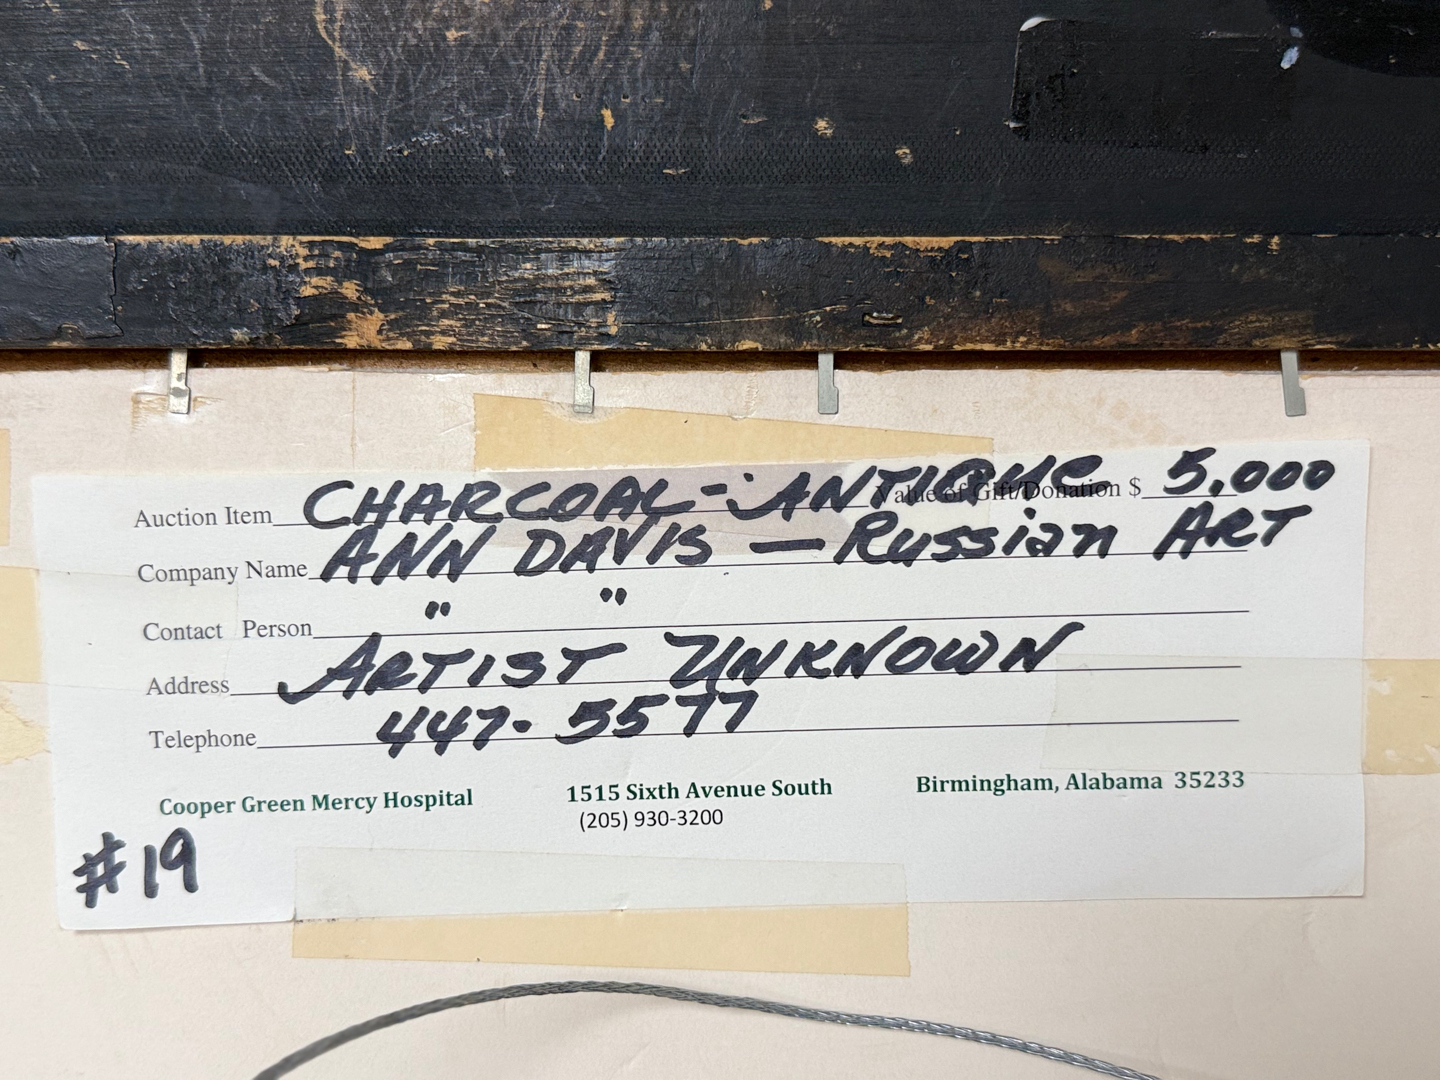 Auction Item CHARCOAL - ANTIQUE Value of Gift/Donation $ 5,000
Company Name ANN DAVIS — Russian ART
Contact Person " "
Address ARTIST UNKNOWN
Telephone 447-5577
Cooper Green Mercy Hospital 1515 Sixth Avenue South Birmingham, Alabama 35233
(205) 930-3200
#19